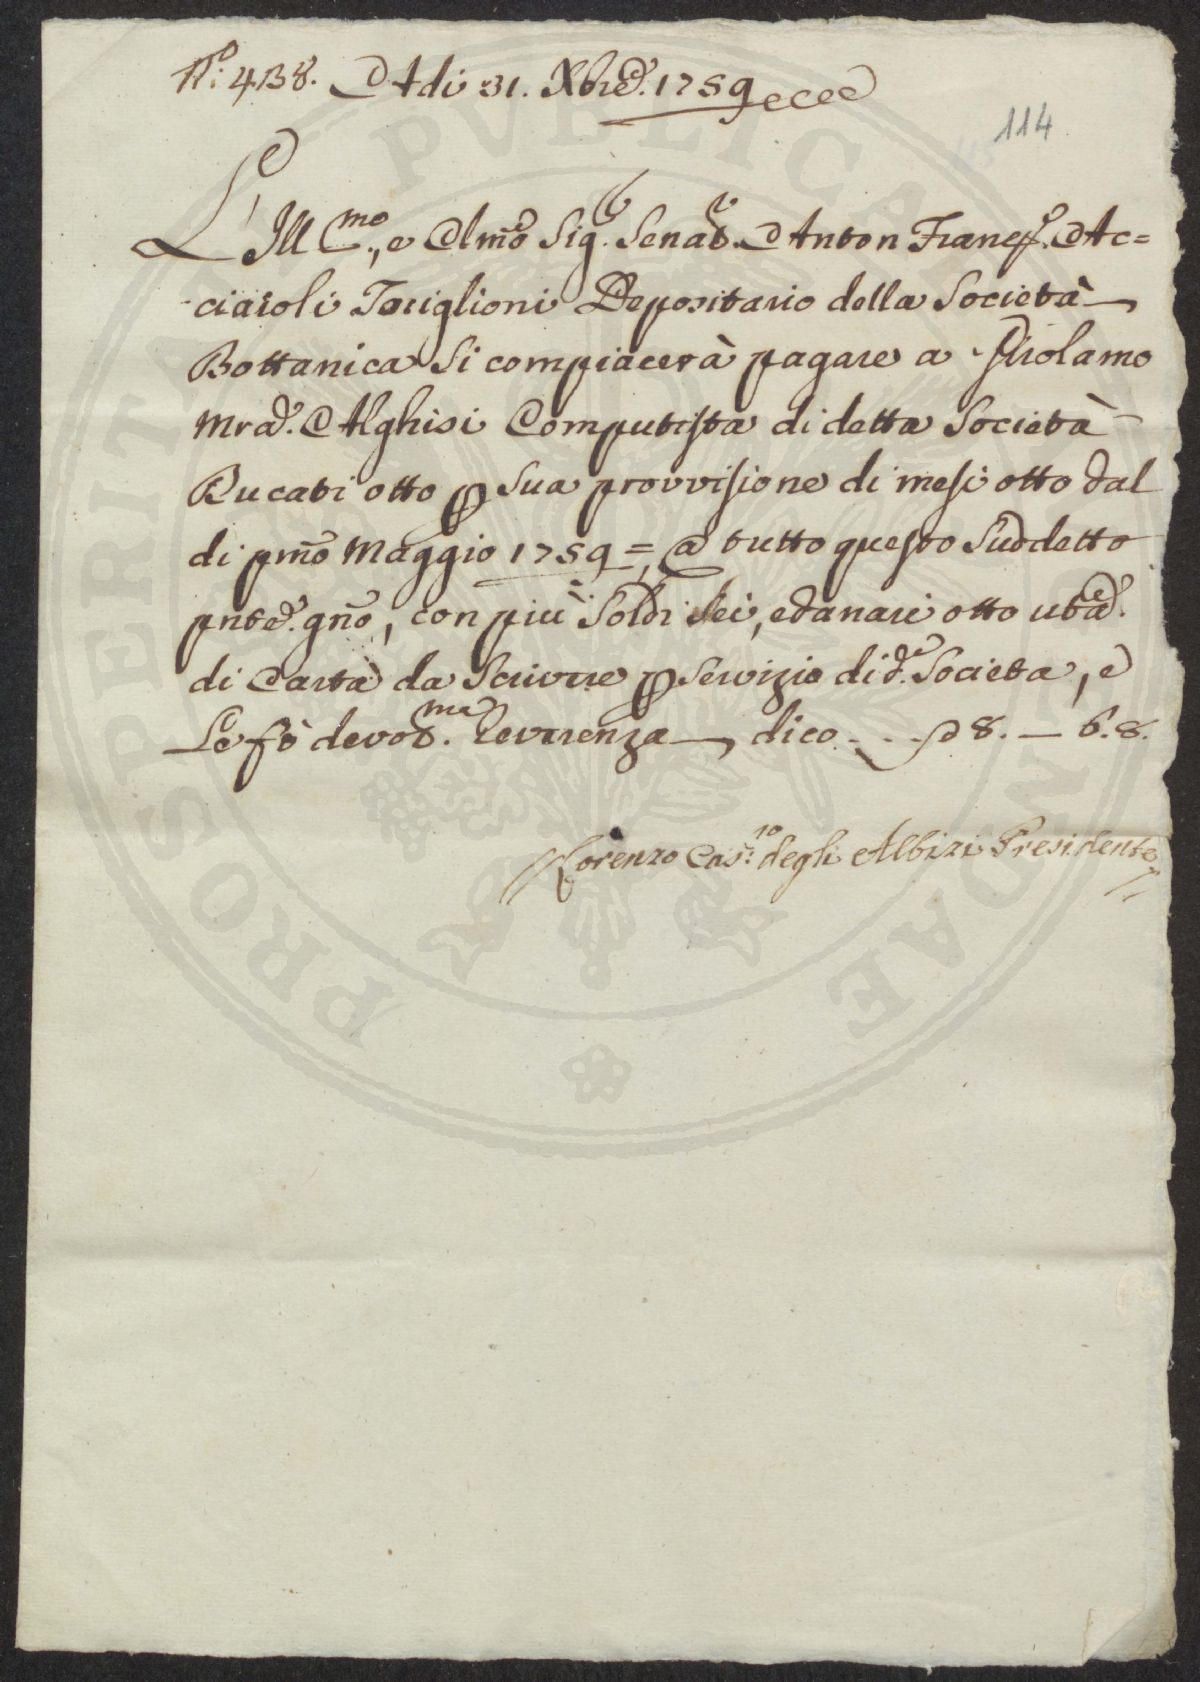 N.o: 438. Adi 31. Xbre. 1759
114
L'Ill.mo, e Clmo Sig.r Senat.e Anton Francs.o Ac=
ciaioli Toriglioni Depositario della Società
Bottanica Si compiacerà pagare a Girolamo
Mra. Alghisi Computista di detta Società
Ducati otto p Sua provvisione di mesi otto dal
di pmo Maggio 1759=, a tutto questo Suddetto
pnte. gno, con più Soldi Sei, e danari otto
di Carta da Scrivere p Servizio di d.e Società, e
Le fò devot.ma Reverenza, dico - - - 8. — 6.8.
Lorenzo degli Albizi Presidente
PROSPERITATI PVBLICAE AVGENDAE